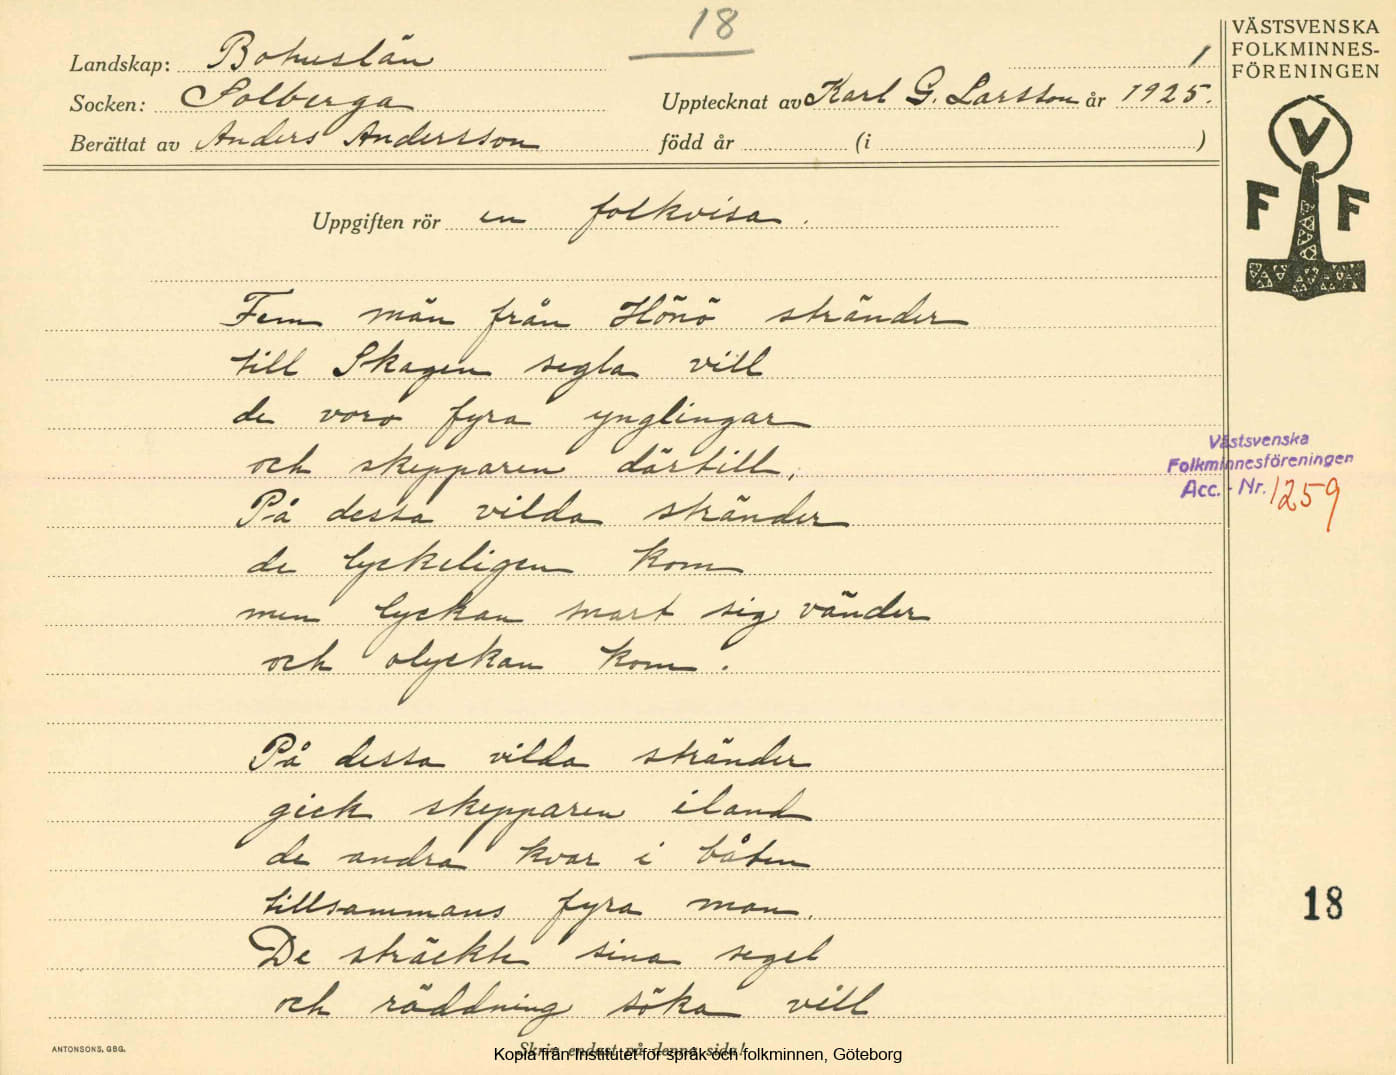 18
Landskap: Bohuslän
1
Socken: Solberga
Upptecknat av Karl G. Larsson år 1925.
Berättat av Anders Andersson
född år (i )
VÄSTSVENSKA
FOLKMINNES-
FÖRENINGEN
V
F F
Uppgiften rör en folkvisa.
Fem män från Hönö stränder
till Skagen segla vill
de voro fyra ynglingar
och skepparen därtill,
Västsvenska
Folkminnesföreningen
Acc. - Nr. 1259
På dessa vilda stränder
de lyckeligen kom
men lyckan snart sig vänder
och olyckan kom.
På dessa vilda stränder
gick skepparen iland
de andra kvar i båten
tillsammans fyra man.
18
De sträckte sina segel
och räddning söka vill
ANTONSONS, GBG.
Skriv endast på denna sida!
Kopia från Institutet för språk och folkminnen, Göteborg